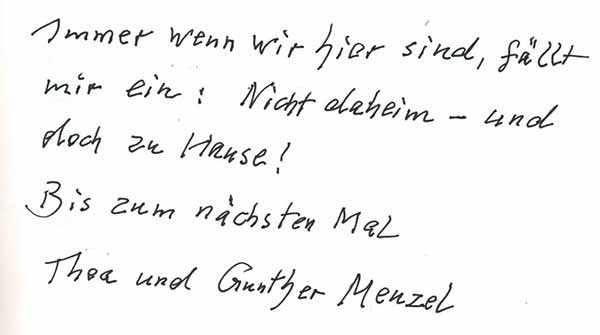 Immer wenn wir hier sind, fällt
mir ein: Nicht daheim – und
doch zu Hause!
Bis zum nächsten Mal
Thea und Gunther Menzel